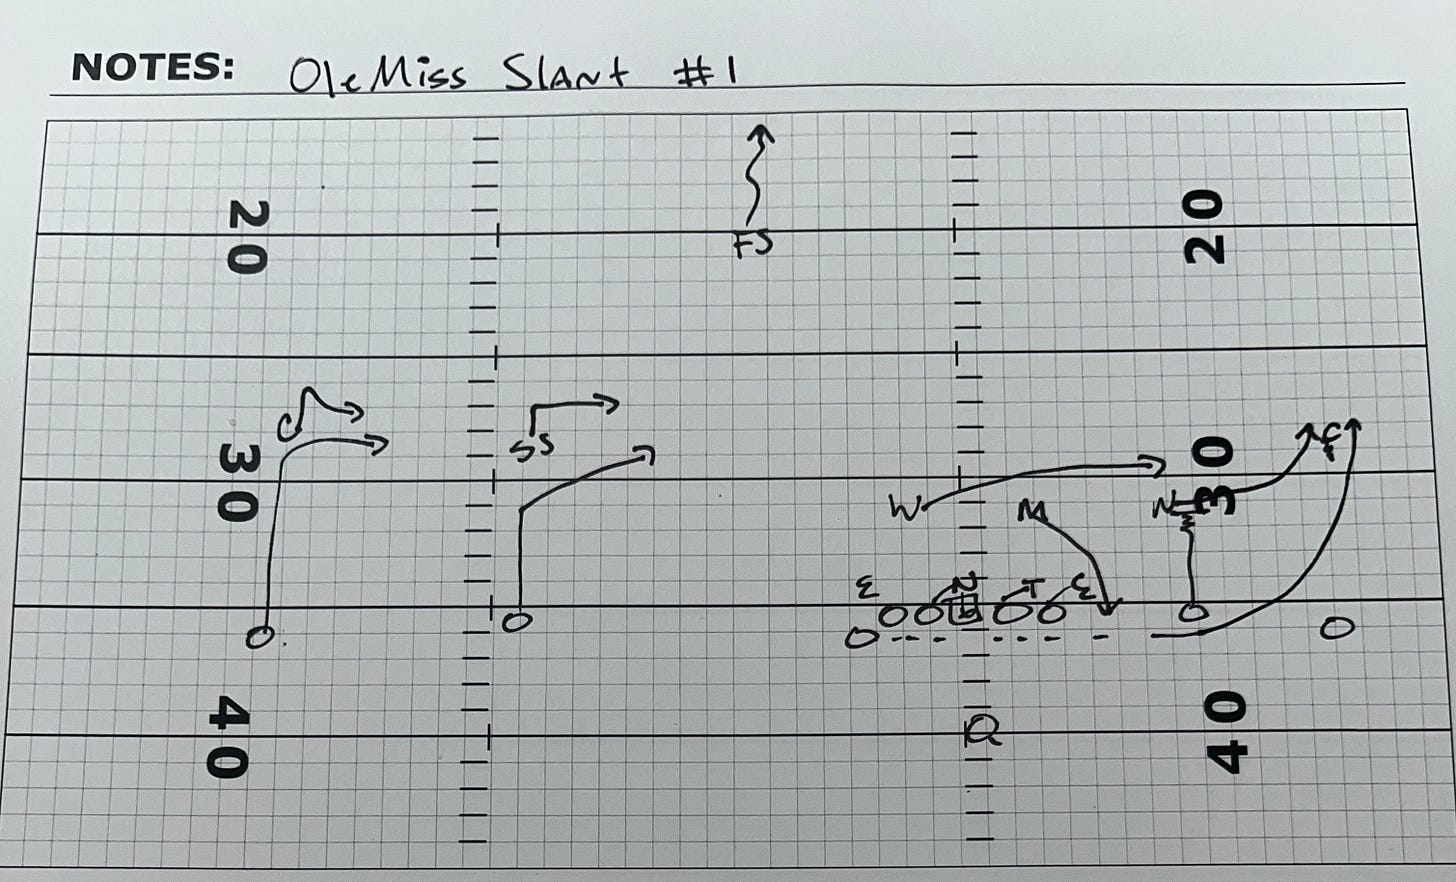 NOTES: Ole Miss Slant #1
FS
20 20
SS
30 30
W M N
E N T E
Q
40 40